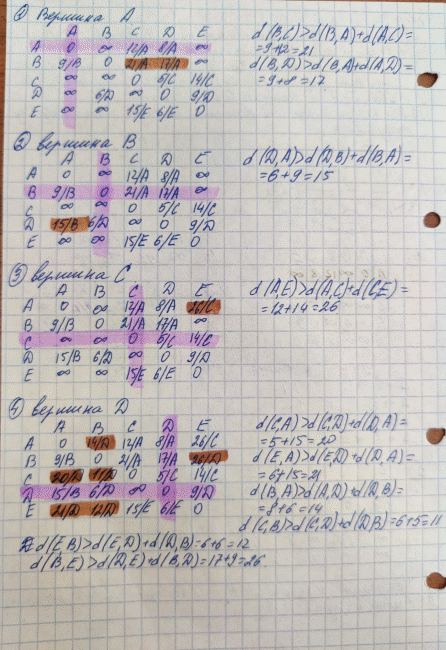 ① Вершина A
A B C D E
A 0 ∞ 12/A 8/A ∞
B 9/B 0 21/A 17/A ∞
C ∞ ∞ 0 5/C 14/C
D ∞ 6/D ∞ 0 9/D
E ∞ ∞ 15/E 6/E 0
d(B,C)>d(B,A)+d(A,C)=
=9+12=21
d(B,D)>d(B,A)+d(A,D)=
=9+8=17
② вершина B
A B C D E
A 0 ∞ 12/A 8/A ∞
B 9/B 0 21/A 17/A ∞
C ∞ ∞ 0 5/C 14/C
D 15/B 6/D ∞ 0 9/D
E ∞ ∞ 15/E 6/E 0
d(D,A)>d(D,B)+d(B,A)=
=6+9=15
③ вершина C
A B C D E
A 0 ∞ 12/A 8/A 26/C
B 9/B 0 21/A 17/A ∞
C ∞ ∞ 0 5/C 14/C
D 15/B 6/D ∞ 0 9/D
E ∞ ∞ 15/E 6/E 0
d(A,E)>d(A,C)+d(C,E)=
=12+14=26
④ вершина D
A B C D E
A 0 14/D 12/A 8/A 26/C
B 9/B 0 21/A 17/A 26/D
C 20/D 11/D 0 5/C 14/C
D 15/B 6/D ∞ 0 9/D
E 21/D 12/D 15/E 6/E 0
d(C,A)>d(C,D)+d(D,A)=
=5+15=20
d(E,A)>d(E,D)+d(D,A)=
=6+15=21
d(B,A)>d(A,D)+d(D,B)=
=8+6=14
d(C,B)>d(C,D)+d(D,B)=6+5=11
d(E,B)>d(E,D)+d(D,B)=6+6=12
d(B,E)>d(D,E)+d(B,D)=17+9=26.